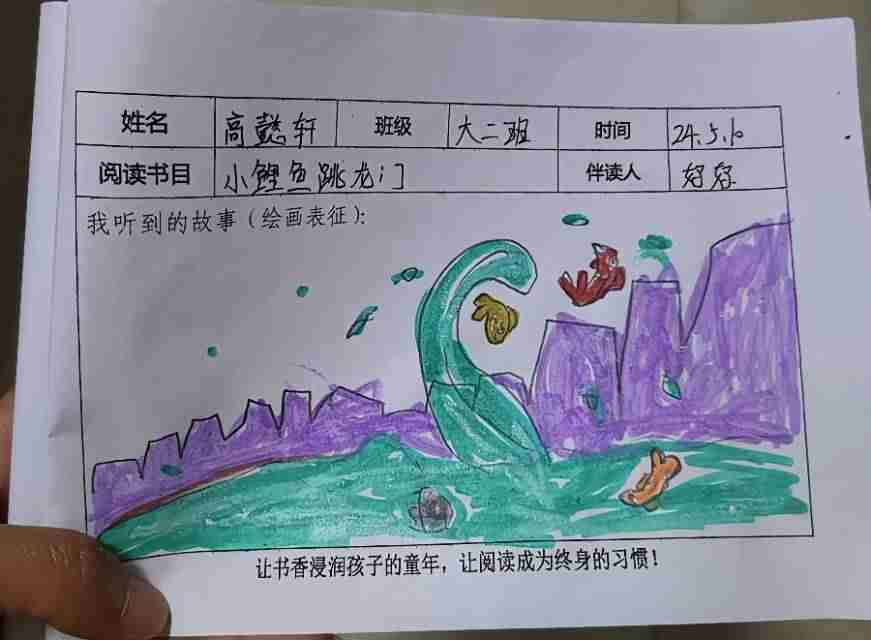 姓名 高懿轩 班级 大二班 时间 24.5.10
阅读书目 小鲤鱼跳龙门 伴读人
我听到的故事（绘画表征）：
让书香浸润孩子的童年，让阅读成为终身的习惯！